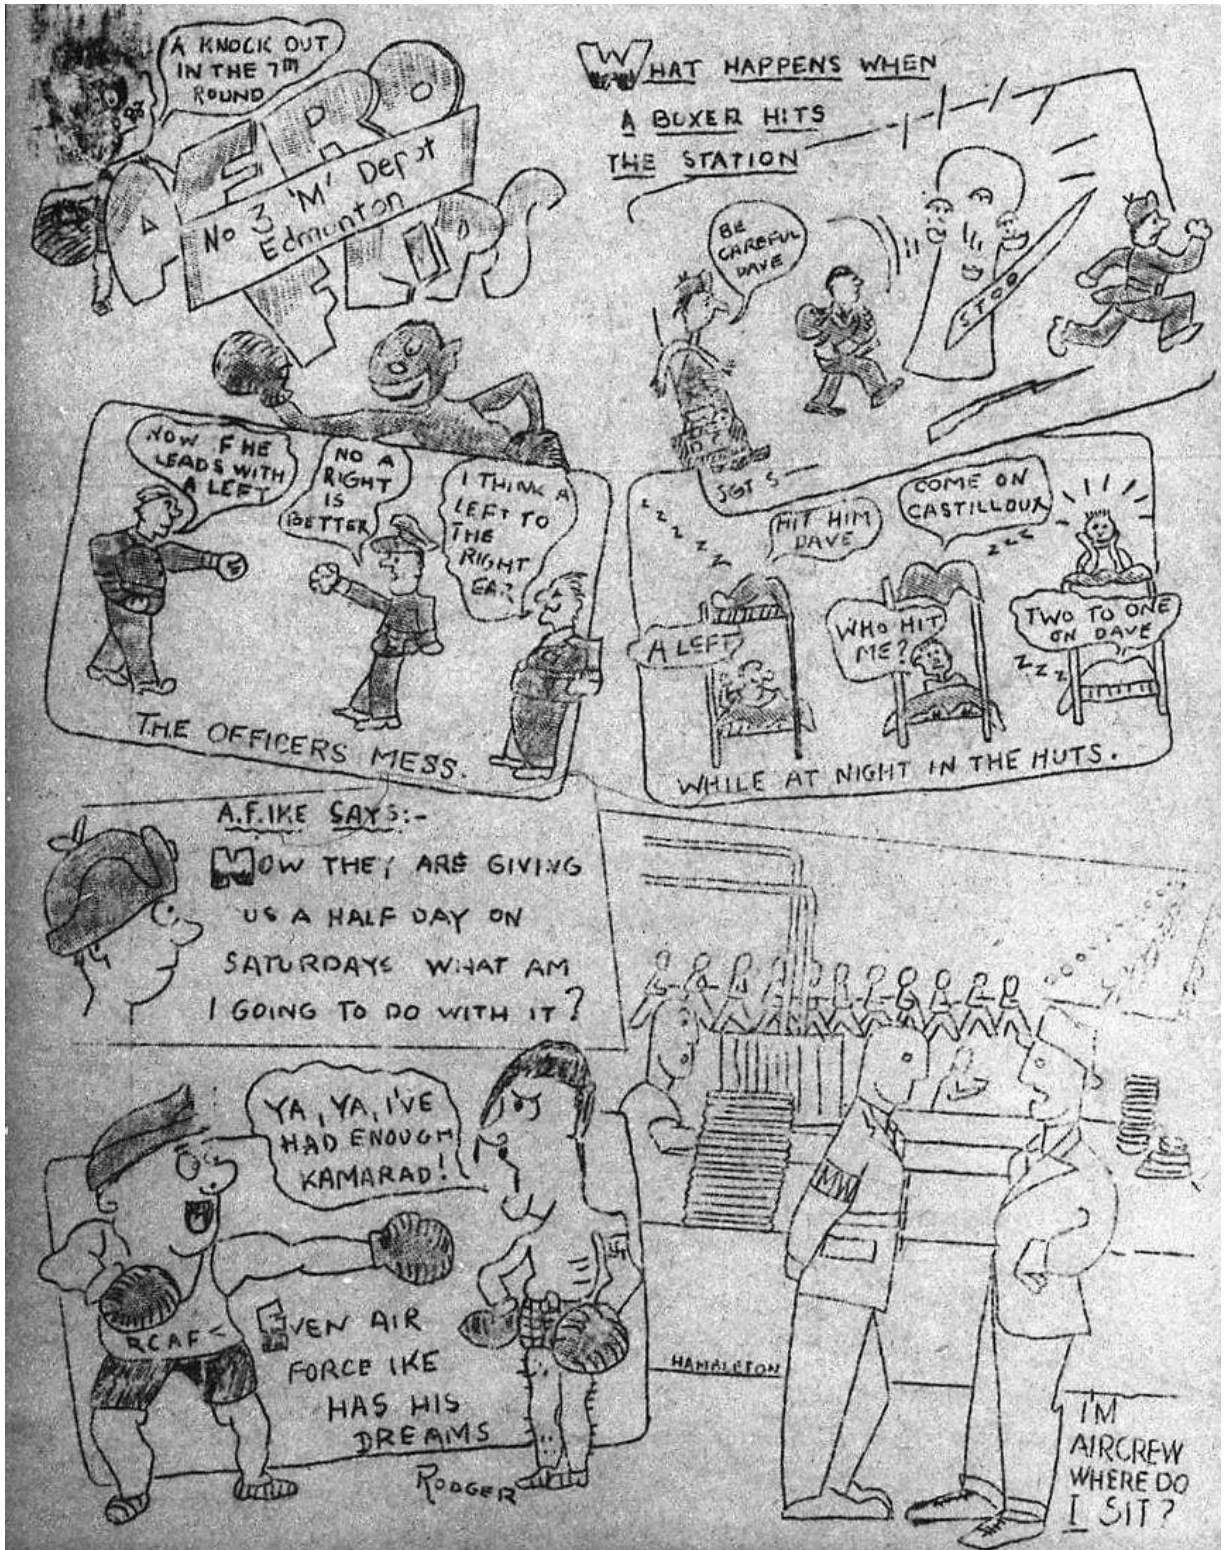 A KNOCK OUT
IN THE 7TH
ROUND
AERO
No 3 'M' Depot
Edmonton
WHAT HAPPENS WHEN
A BOXER HITS
THE STATION
BE
CAREFUL
DAVE
STOP
SGT S—
NOW IF HE
LEADS WITH
A LEFT
NO A
RIGHT
IS
BETTER
I THINK A
LEFT TO
THE
RIGHT
EAR
THE OFFICERS MESS.
Z Z Z Z Z Z
HIT HIM
DAVE
COME ON
CASTILLOUX
Z Z Z
A LEFT
WHO HIT
ME?
TWO TO ONE
ON DAVE
Z Z Z Z
WHILE AT NIGHT IN THE HUTS.
A.F. IKE SAYS:-
NOW THEY ARE GIVING
US A HALF DAY ON
SATURDAYS WHAT AM
I GOING TO DO WITH IT?
YA, YA, I'VE
HAD ENOUGH
KAMARAD!
RCAF
EVEN AIR
FORCE IKE
HAS HIS
DREAMS
RODGER
MW
HAMBLETON
I'M
AIRCREW
WHERE DO
I SIT?